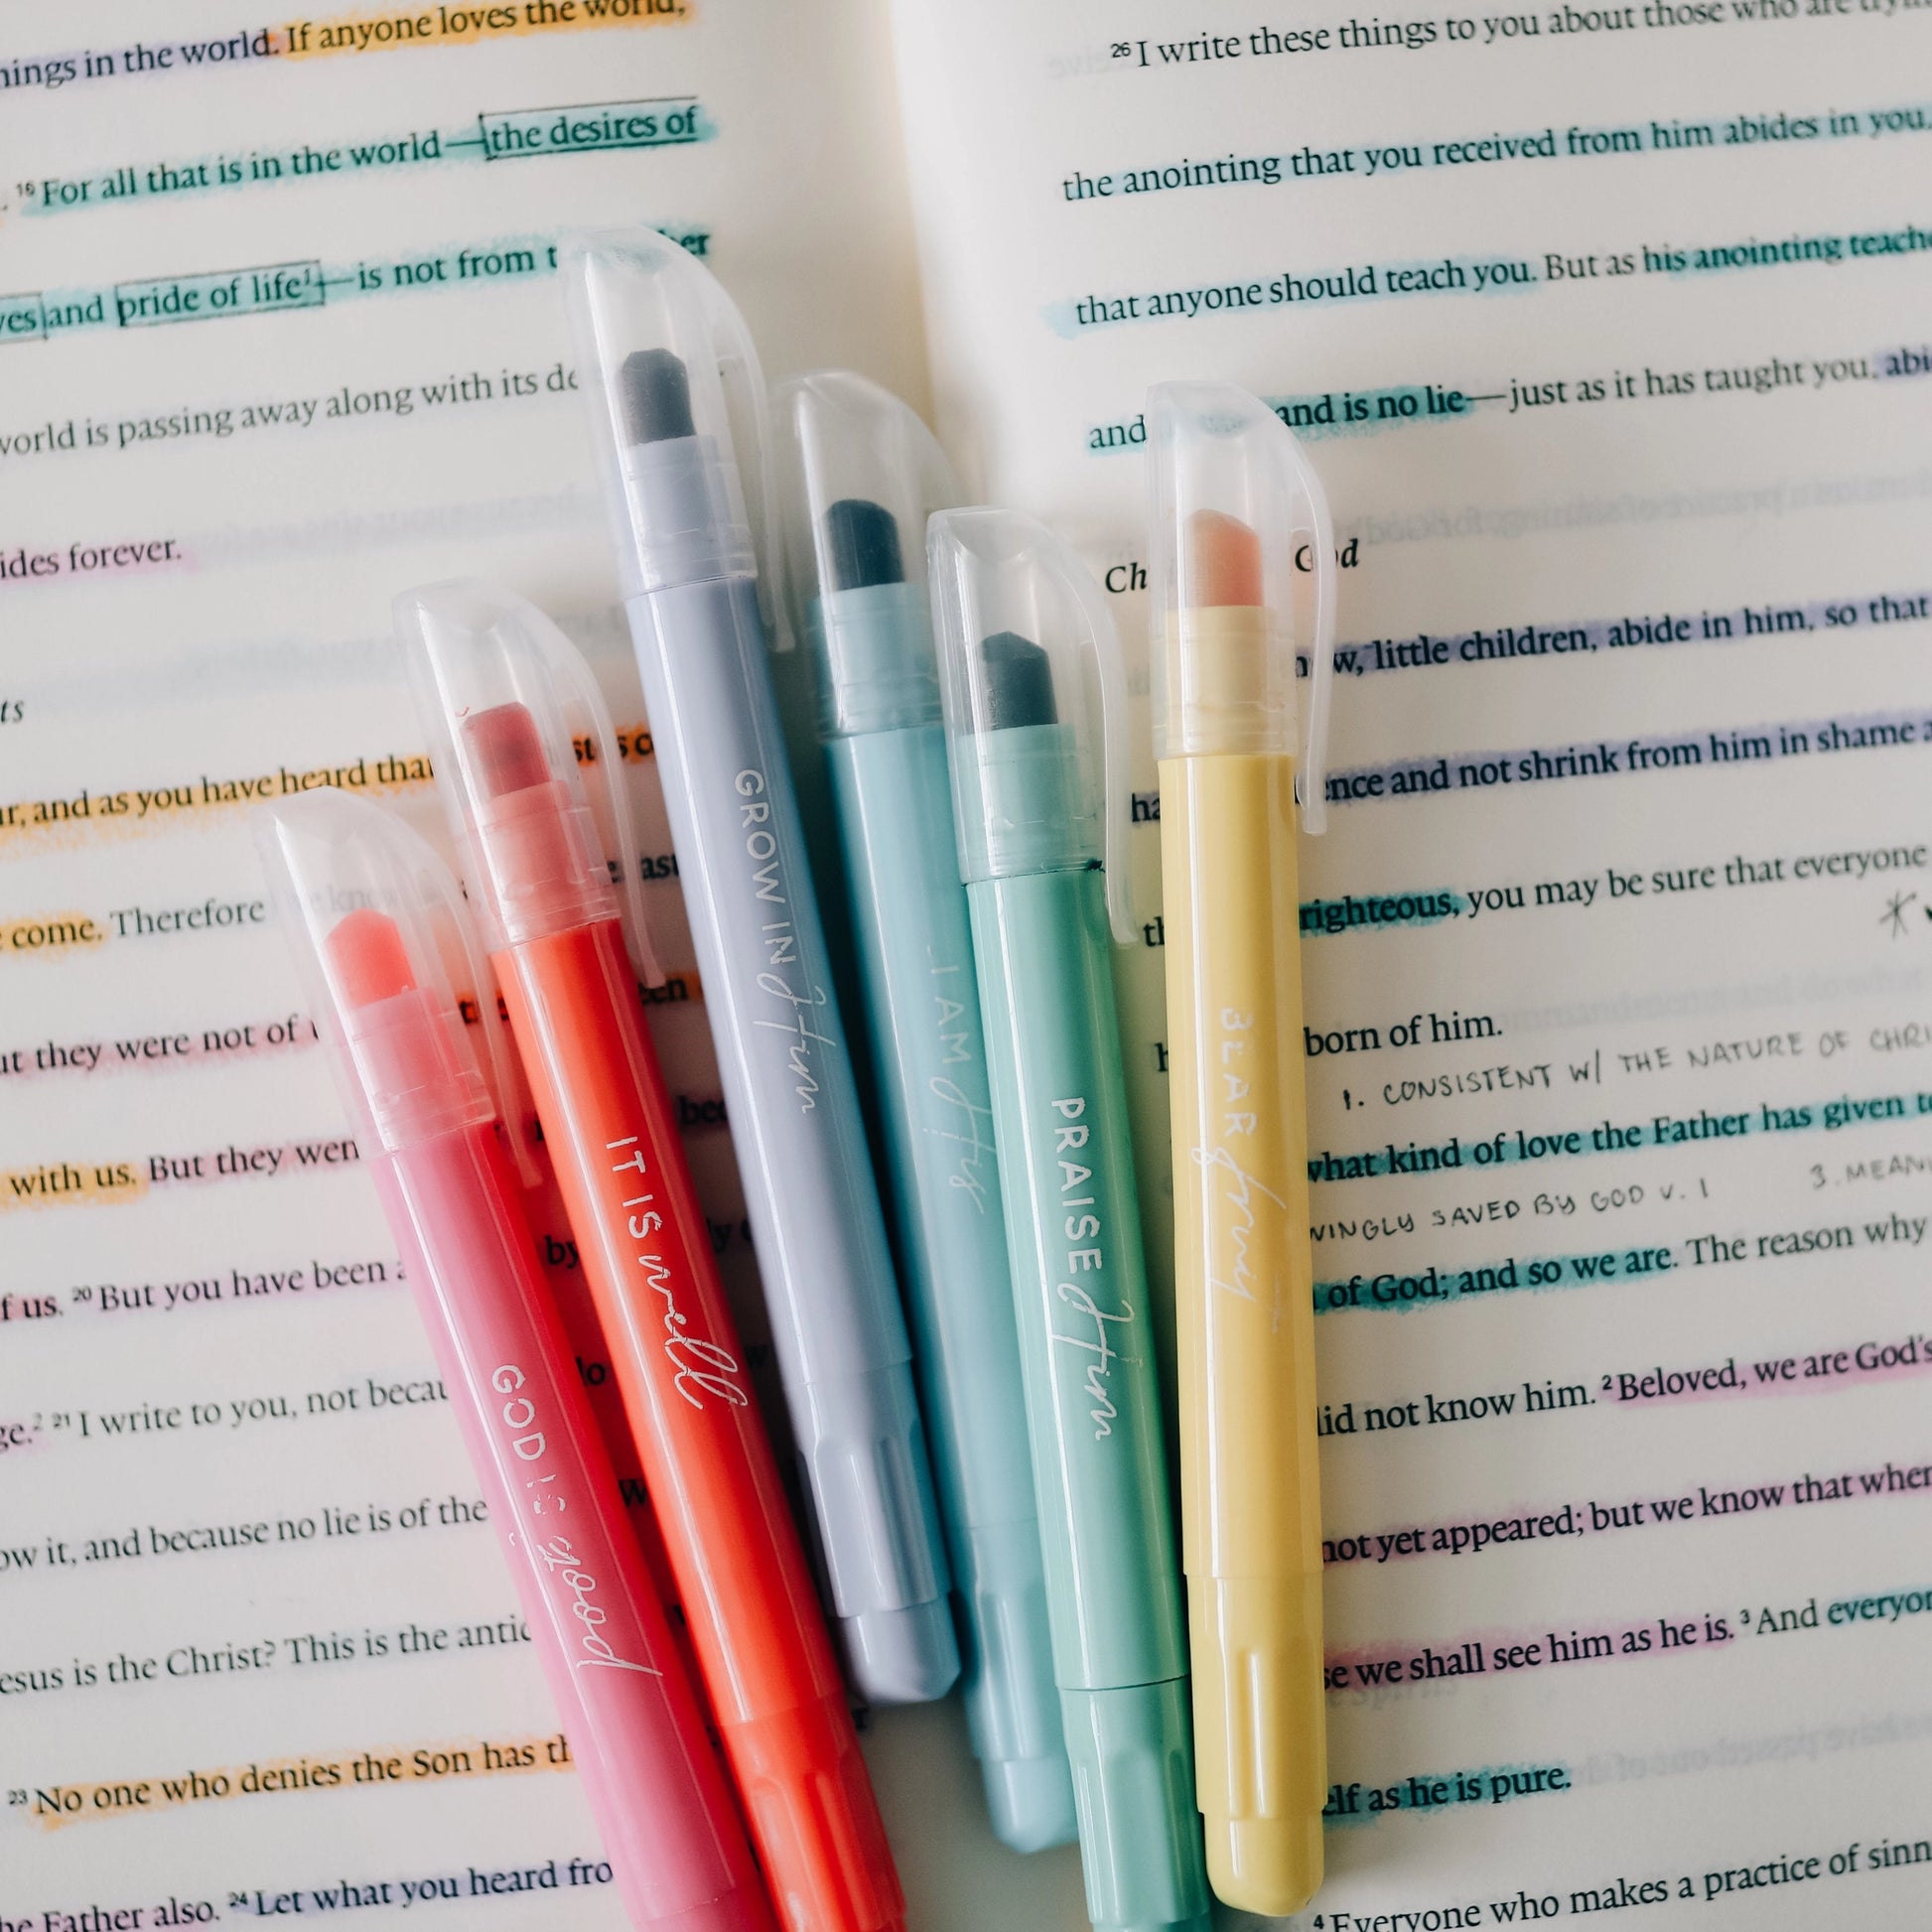 things in the world. If anyone loves the world,
. 16 For all that is in the world—the desires of
yes and pride of life1—is not from t er
world is passing away along with its de
ides forever.
ts
ur, and as you have heard that st s c
come. Therefore know ast
ut they were not of een
with us. But they wen bec
f us. 20 But you have been a by
ge.2 21 I write to you, not becau
ow it, and because no lie is of the
esus is the Christ? This is the antic
23 No one who denies the Son has th
he Father also. 24 Let what you heard fro
26 I write these things to you about those who are tryin
the anointing that you received from him abides in you,
that anyone should teach you. But as his anointing teache
and and is no lie—just as it has taught you, abi
Ch God
now, little children, abide in him, so that
ha ence and not shrink from him in shame a
th righteous, you may be sure that everyone
born of him.
1. CONSISTENT W/ THE NATURE OF CHRI
what kind of love the Father has given to
WINGLY SAVED BY GOD V. 1 3. MEANI
of God; and so we are. The reason why
did not know him. 2 Beloved, we are God's
not yet appeared; but we know that when
se we shall see him as he is. 3 And everyon
elf as he is pure.
4 Everyone who makes a practice of sinn
GOD IS good
IT IS well
GROW IN Him
I AM His
PRAISE Him
BEAR fruit